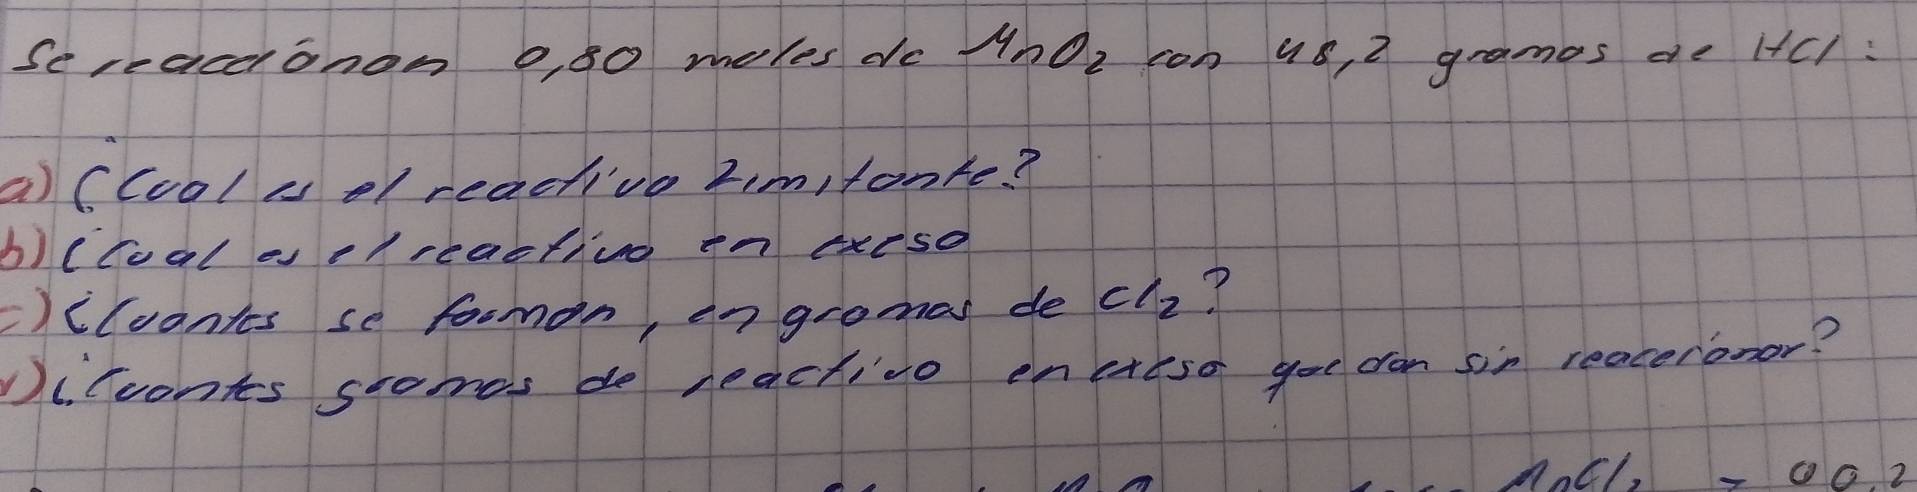 Se reacciónan 0,80 moles de MnO2 con 48,2 gramos de HCl:
a) ¿Cual es el reactivo Limitante?
b) ¿Cual es el reactivo en exeso
c) ¿Cuantos se forman, en gramos de Cl2?
¿Cuantos gramos de reactivo en exeso quedan sin reaccionar?
MnCl2